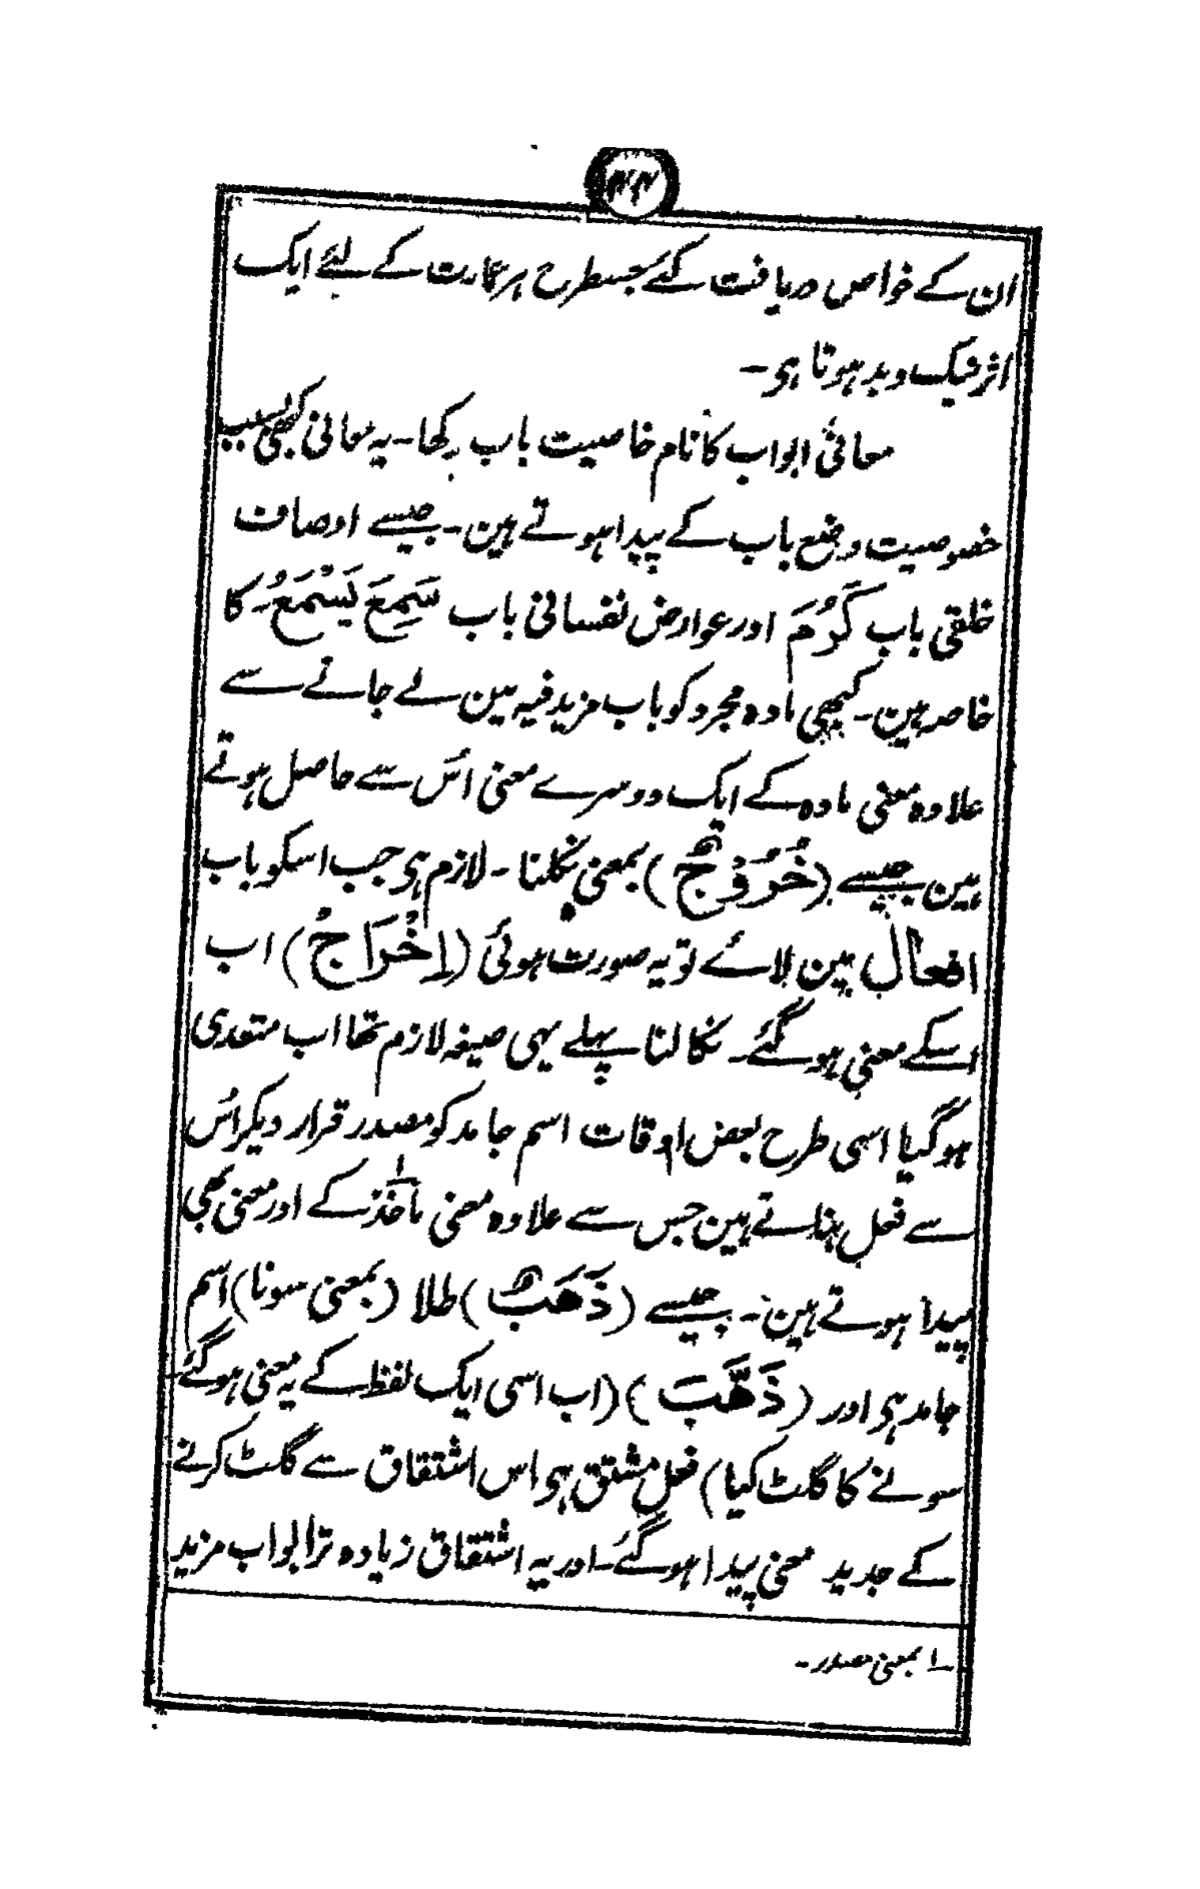 ۴۴
ان کے خواص دریافت کئے جسطرح ہر عمارت کے لئے ایک
اثر نیک و بد ہوتا ہی -
معانیٔ ابواب کا نام خاصیت باب رکھا - یہ معانی کبھی بسبب
خصوصیت وضع باب کے پیدا ہوتے ہین - جیسے اوصاف
خلقی باب کَرُمَ اور عوارض نفسانی باب سَمِعَ یَسْمَعُ کا
خاصہ ہین - کبھی مادہ مجرد کو باب مزید فیہ مین لے جانے سے
علاوہ معنی مادہ کے ایک دوسرے معنی اُس سے حاصل ہوتے
ہین جیسے (خُرُوْجٌ) بمعنی نکلنا - لازم ہی جب اسکو باب
افعال مین لائے تو یہ صورت ہوئی (اِخْرَاجٌ) اب
اسکے معنی ہو گئے - نکالنا پہلے یہی صیغہ لازم تھا اب متعدی
ہو گیا اسی طرح بعض اوقات اسم جامد کو مصدر قرار دیکر اُس
سے فعل بناتے ہین جس سے علاوہ معنی ماخذ۱ کے اور معنی بھی
پیدا ہوتے ہین - جیسے (ذَھَبٌ) طلا (بمعنی سونا) اسم
جامد ہی اور (ذَھَّبَ) (اب اسی ایک لفظ کے یہ معنی ہو گئے -
سونے کا گلٹ کیا) فعل مشتق ہی اس اشتقاق سے گلٹ کرنے
کے جدید معنی پیدا ہو گئے - اور یہ اشتقاق زیادہ تر ابواب مزید
۱ بمعنی مصدر -